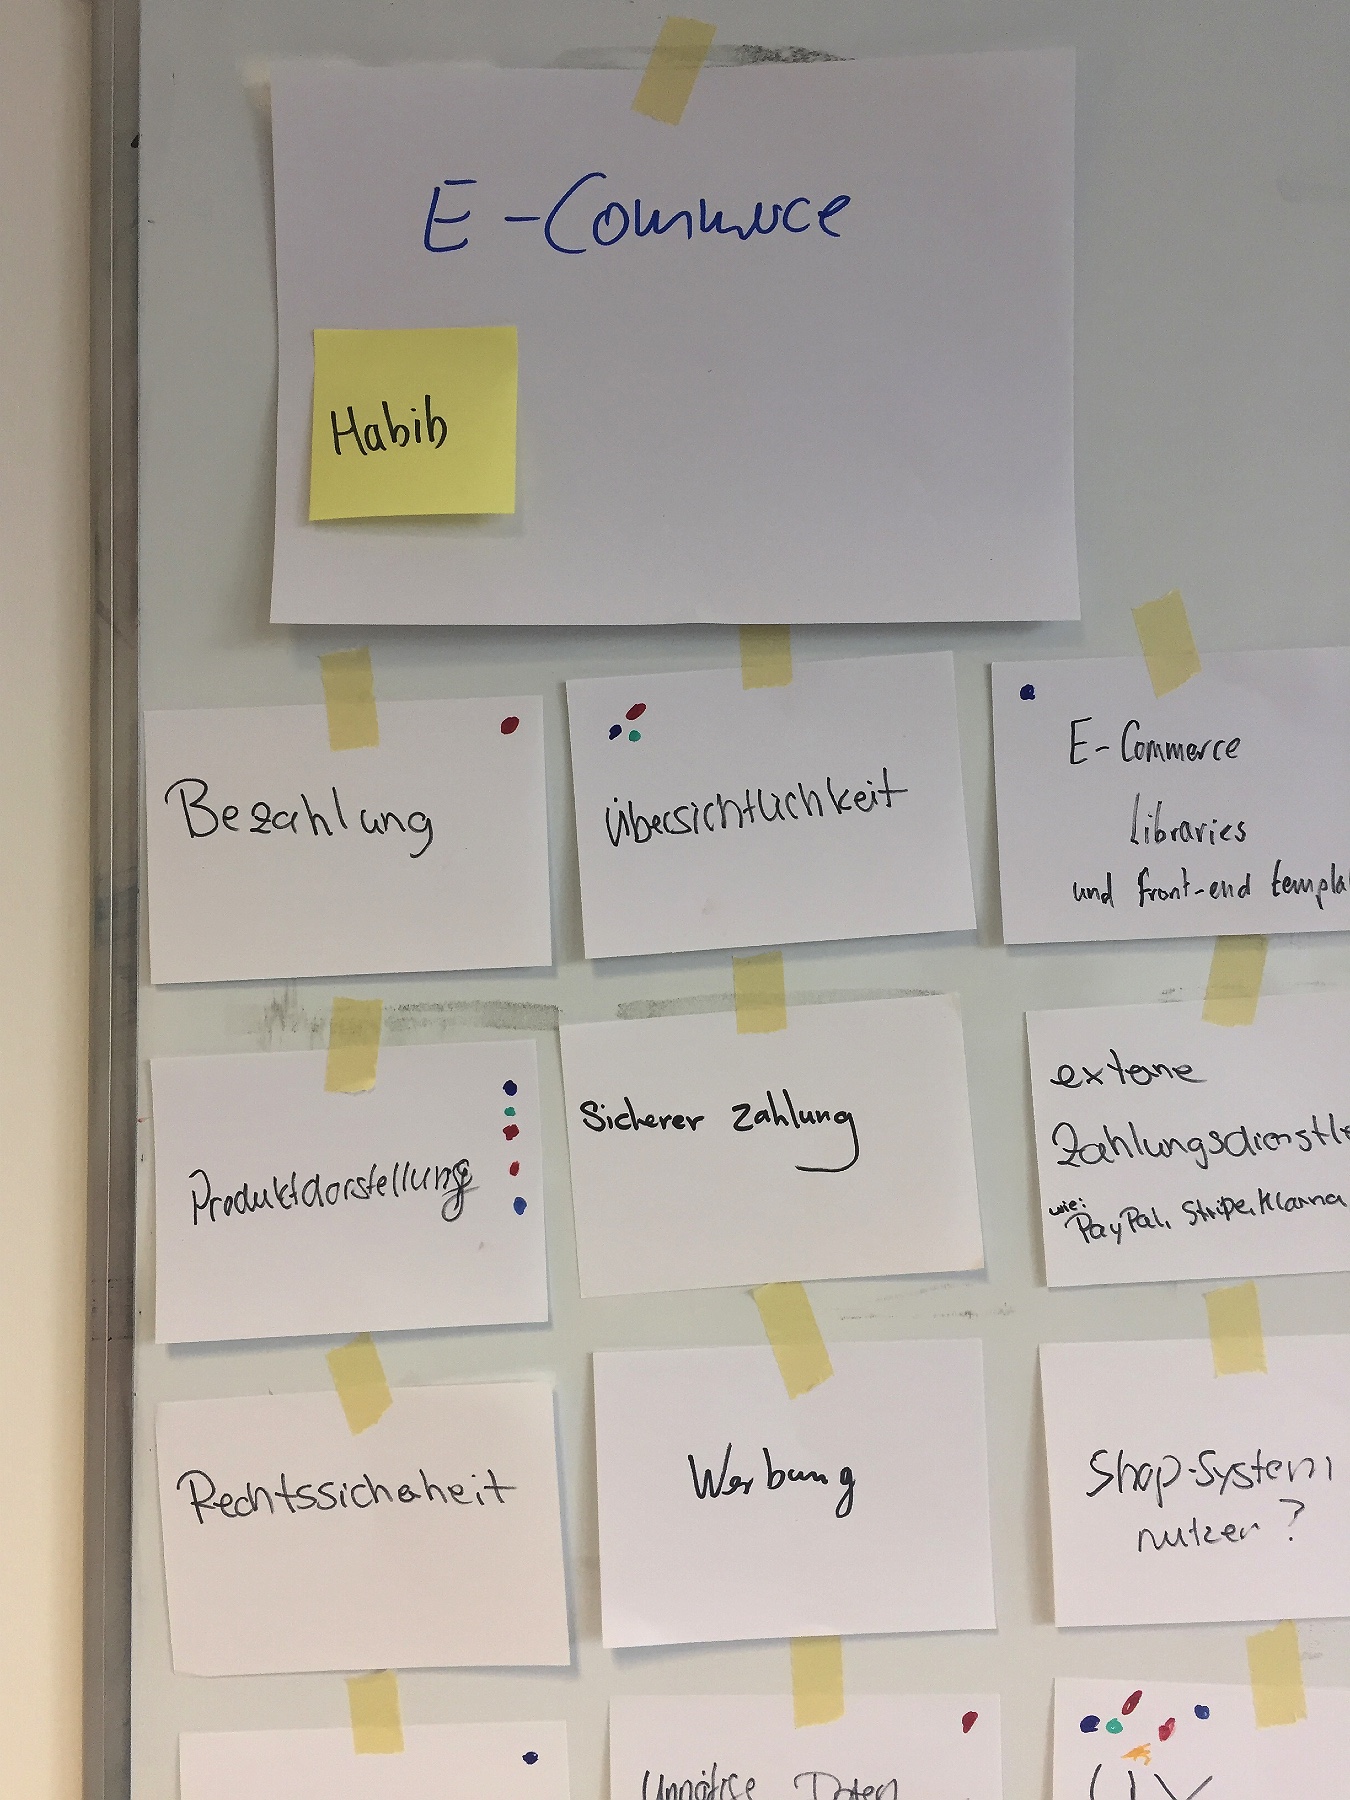 E-Commerce
Habib
Bezahlung
Übersichtlichkeit
E-Commerce
Libraries
und front-end templa
Produktdarstellung
Sicherer Zahlung
externe
Zahlungsdienstle
wie:
PayPal, Stripe, Klarna
Rechtssicherheit
Werbung
Shop-System
nutzen?
Unnötige Daten
UX